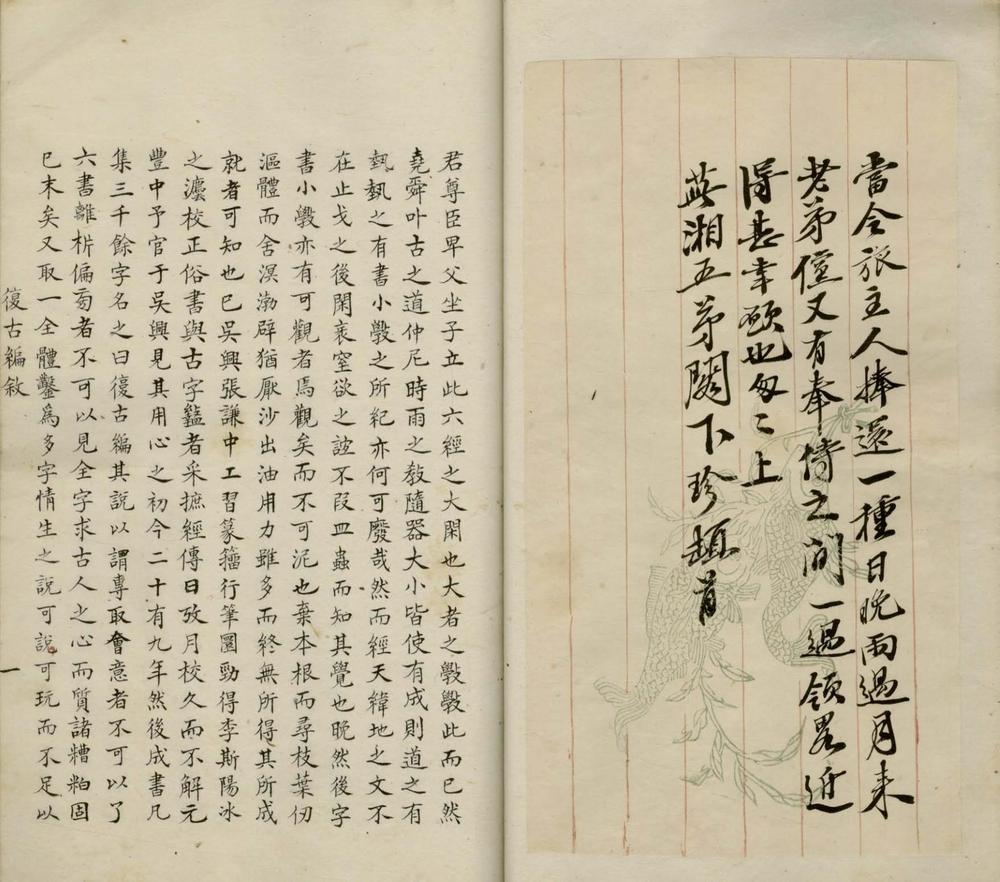 當令旅主人捧還一種日晚雨過月來
老弟僮又有奉借之 間一過領畧近
得甚幸欲也匆匆上
湘五弟閣下 頓首
君尊臣卑父坐子立此六經之大閑也大者之斆斆此而已然
堯舜叶古之道仲尼時雨之教隨器大小皆使有成則道之有
埶埶之有書小斆之所紀亦何可廢哉然而經天緯地之文不
在止戈之後閑衺窒欲之䛑不叚皿蟲而知其覺也晚然後字
書小斆亦有可觀者焉觀矣而不可泥也棄本根而尋枝葉仞
漚體而舍溟渤辟猶厭沙出油用力雖多而終無所得其所成
就者可知也已吳興張謙中工習篆籀行筆圜勁得李斯陽冰
之灋校正俗書與古字盭者采摭經傳日攷月校久而不解元
豐中予官于吳興見其用心之初今二十有九年然後成書凡
集三千餘字名之曰復古編其說以謂專取會意者不可以了
六書離析偏匄者不可以見全字求古人之心而質諸糟粕固
已末矣又取一全體鑿爲多字情生之說可說可玩而不足以
復古編敘 一